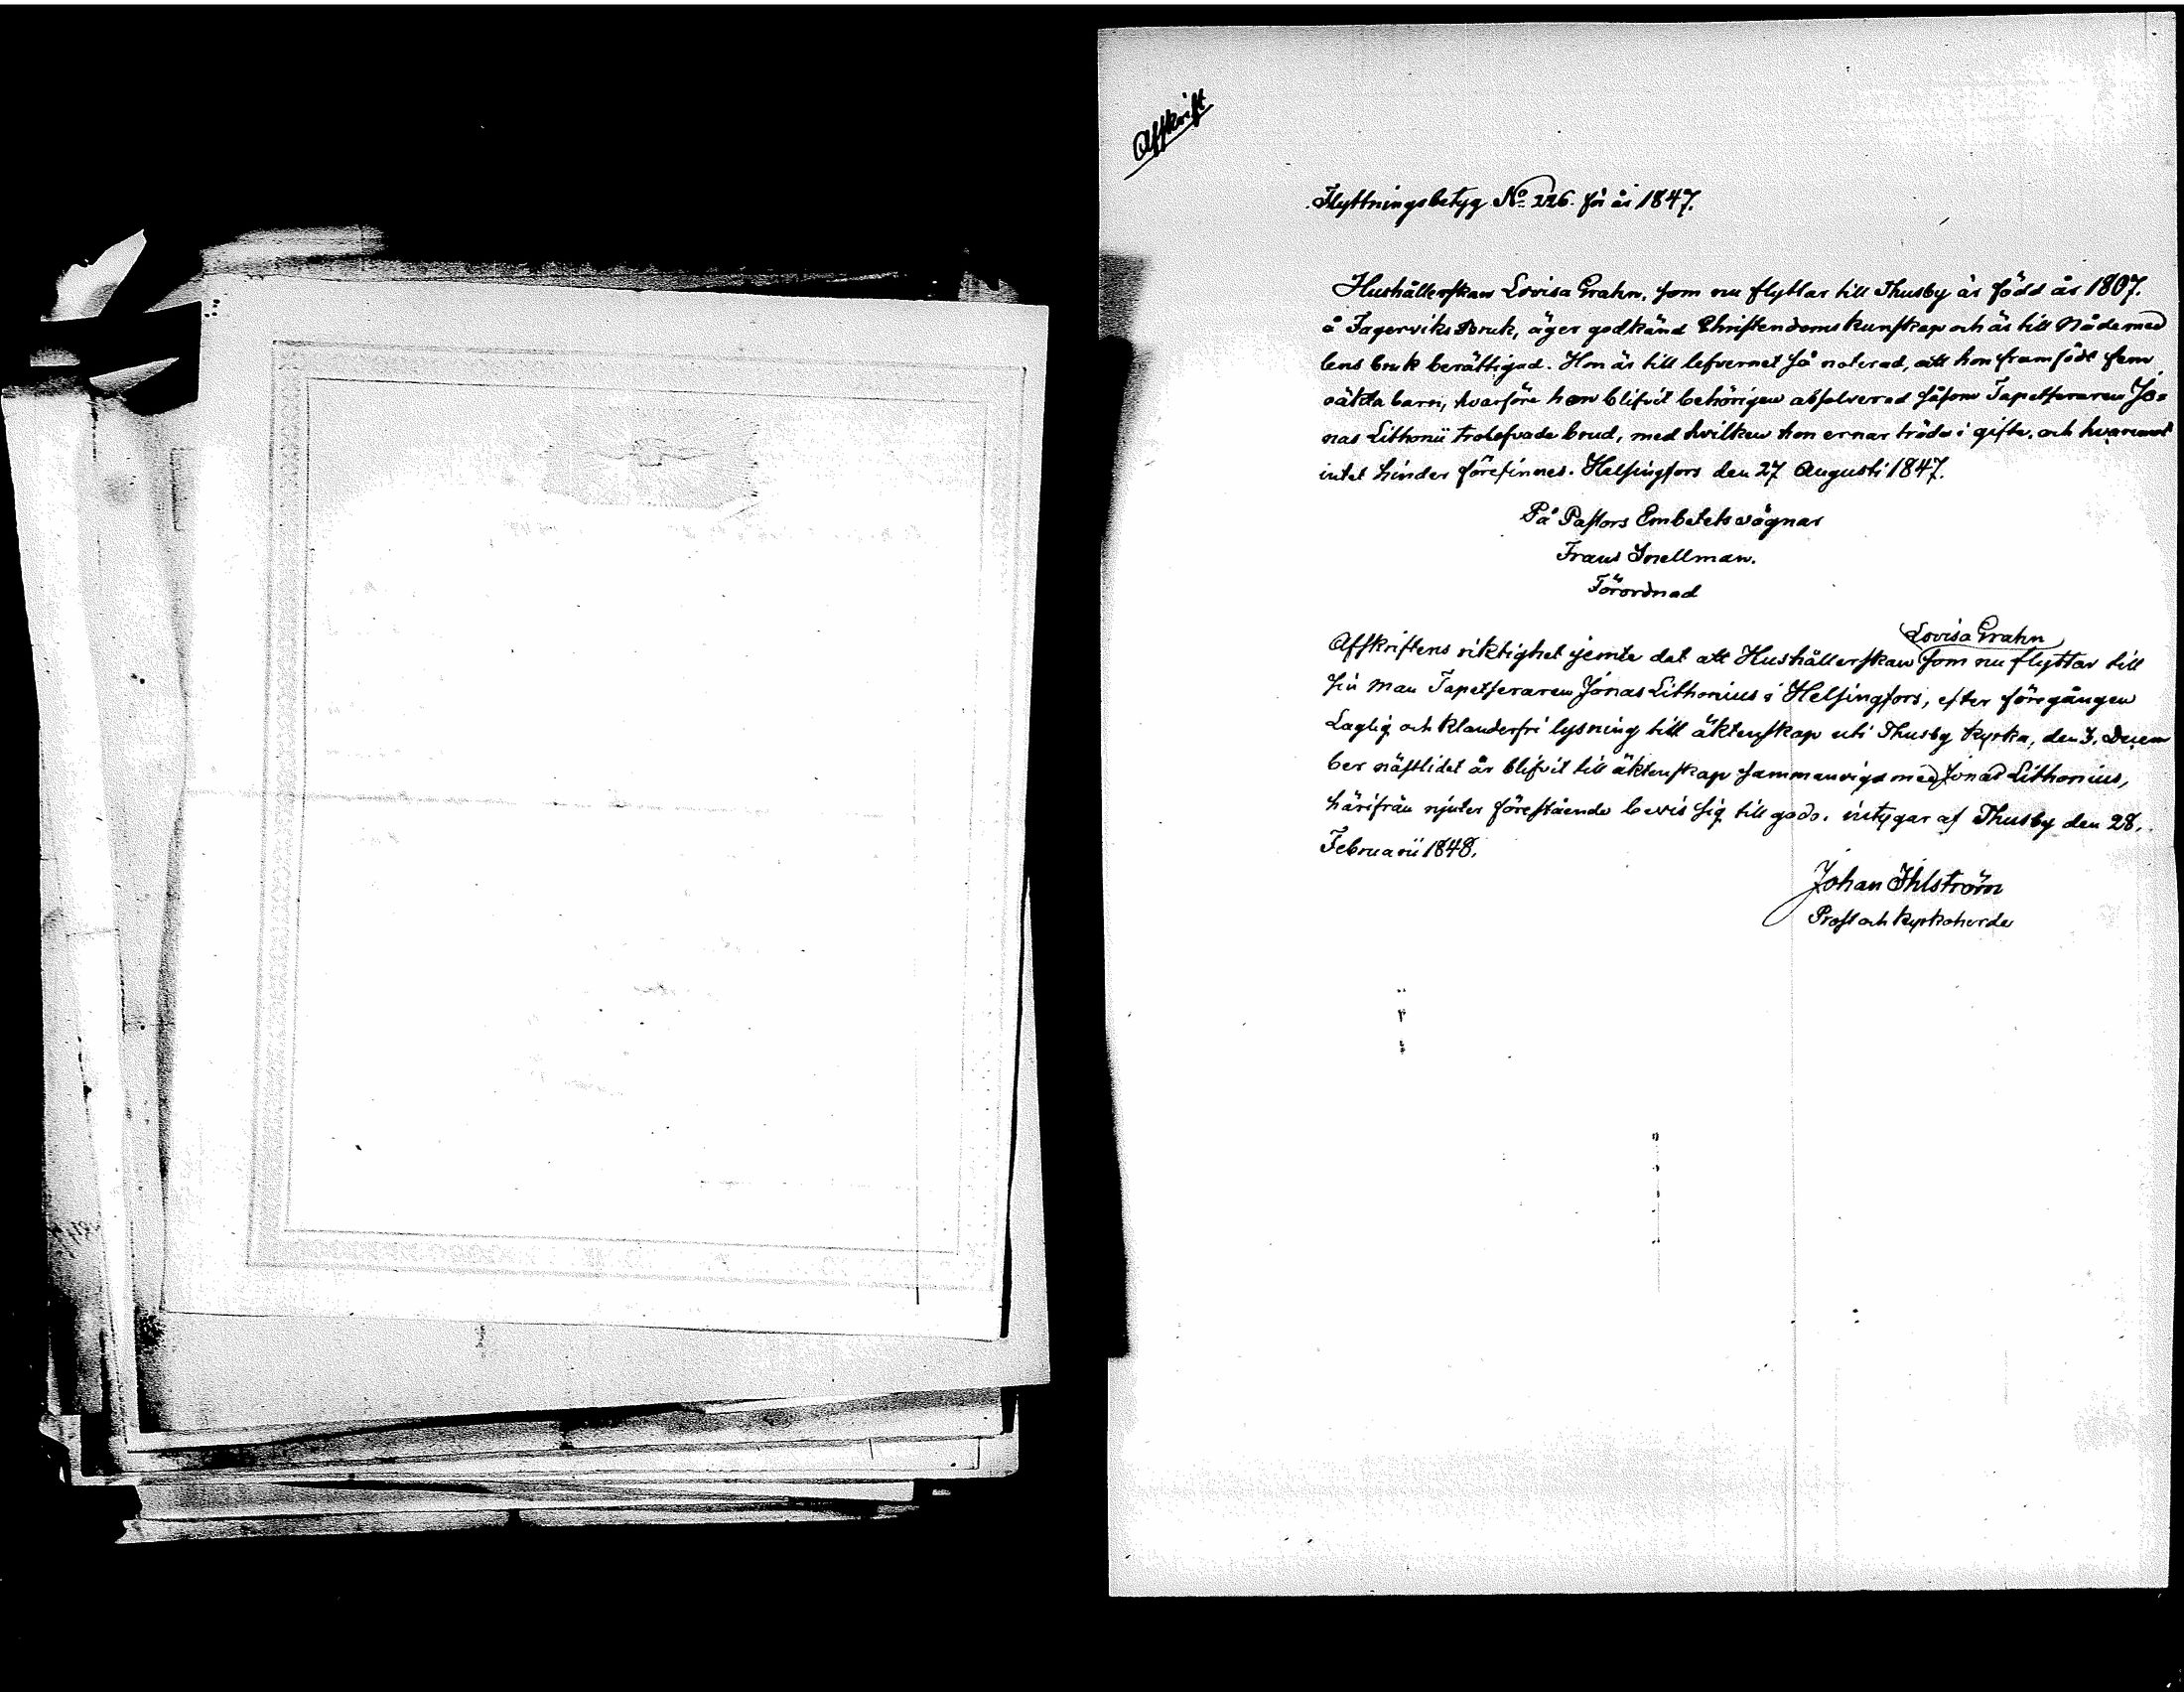 Affkrift
Flyttningsbetyg No 226. för år 1847.
Hushållerskan Lovisa Grahn, som nu flyttar till Thusby är född år 1807.
å Fagerviks Bruk, äger godkänd Christendomskunskap och är till Nådemed
lens bruk berättigad. Hon är till lefvernet så noterad, att hon framfödt fem
oäkta barn, hvarföre hon blifvit behörigen absolverad såsom Tapetseraren Jo=
nas Lithonii trolofvade brud, med hvilken hon ernar träda i gifte. och hvaremot
intet hinder förefinnes. Helsingfors den 27 Augusti 1847.
På Pastors Embetets vägnar
Frans Snellman.
Förordnad
Lovisa Grahn
Affkriftens riktighet jemte det att Hushållerskan som nu flyttar till
sin Man Tapetseraren Jonas Lithonius i Helsingfors, efter föregången
Laglig och klanderfri lysning till äktenskap uti Thusby kyrka, den 3. Decem
ber nästlidet år blifvit till äktenskap sammanvigd med Jonas Lithonius,
härifrån njuter förestående bevis sig till godo. intygar af Thusby den 28.
Februarii 1848.
Johan Ihlström
Prost och kyrkoherde